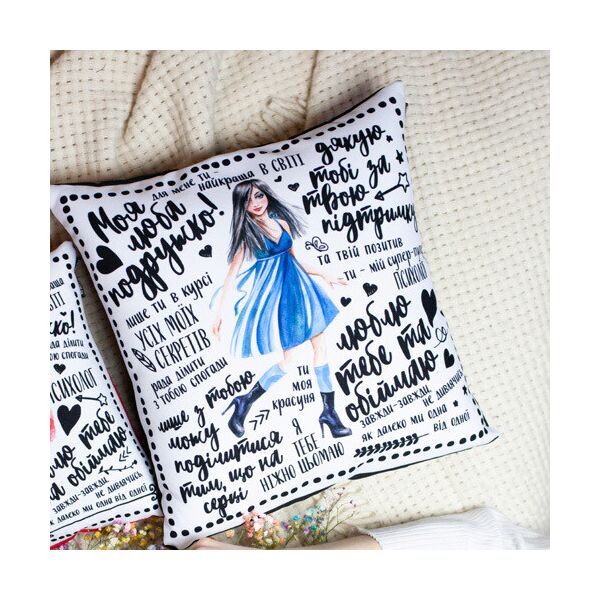 Моя
люба
подружко!
для мене ти -
найкраща в світі
дякую
тобі за
твою
підтримку
та твій позитив
ти - мій супер-
психолог
лише ти в курсі
усіх моїх
секретів
рада ділити
з тобою спогади
ти
моя
красуня
люблю
тебе та
обіймаю
лише з тобою
можу
поділитися
тим, що на
серці
я
тебе
ніжно цьомаю
завжди-завжди, не дивлячись
як далеко ми одна від одної
психолог
тебе
та обіймаю
завжди-завжди, не дивлячись
як далеко ми одна від одної
ділити
з тобою спогади